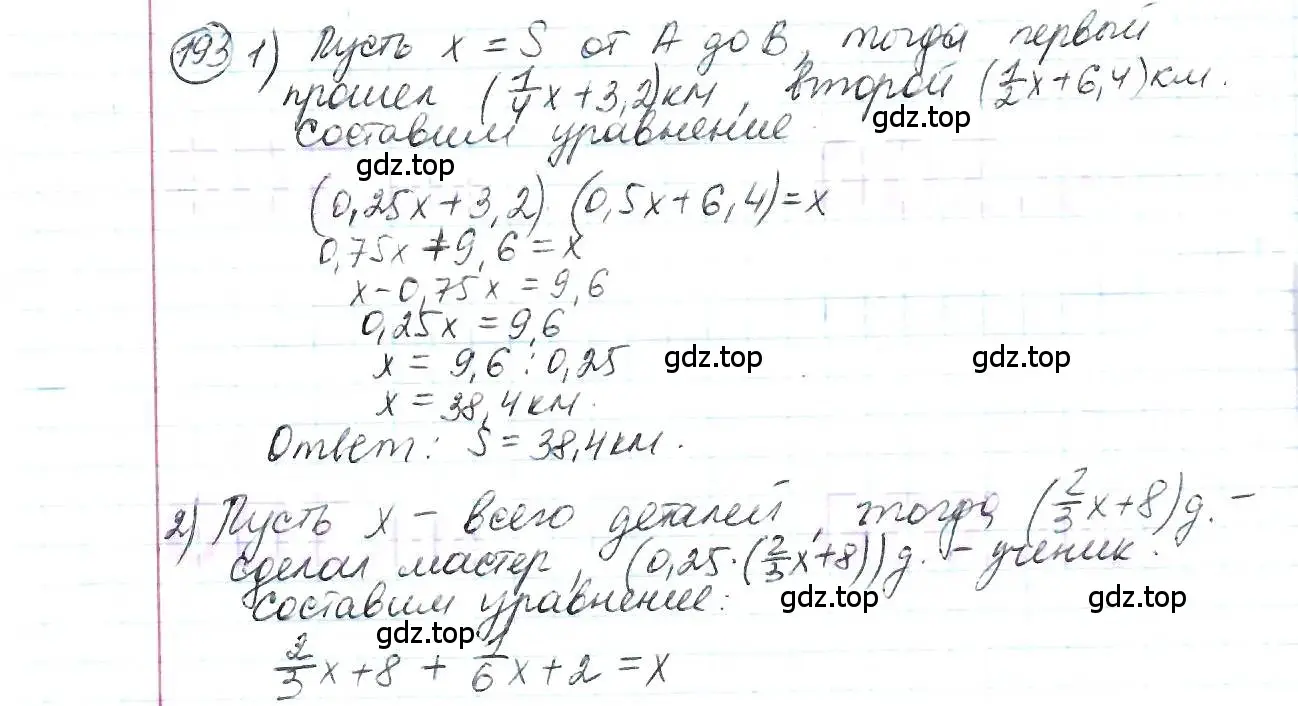 193 1) Пусть x = S от A до B, тогда первый
прошел (1/4x+3,2)км, второй (1/2x+6,4)км.
gdz.top
составим уравнение
gdz.top
(0,25x+3,2) (0,5x+6,4)=x
0,75x+9,6=x
x-0,75x=9,6
0,25x=9,6
x = 9,6 : 0,25
gdz.top
gdz.top
x = 38,4 км.
Ответ: S = 38,4 км.
2) Пусть x - всего деталей, тогда (2/3x+8)д. -
сделал мастер, (0,25·(2/3x+8))д. - ученик.
составим уравнение:
gdz.top
gdz.top
gdz.top
2/3x+8 + 1/6x+2 = x